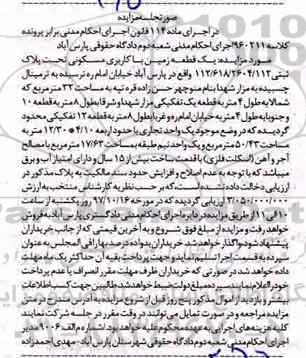 صورتجلسه مزایده
در اجرای ماده ۱۱۴ قانون اجرای احکام مدنی برابر پرونده
کلاسه ۹۶۰۲۱۱ اجرای احکام مدنی شعبه دوم دادگاه حقوقی پارس آباد
مورد مزایده: یک قطعه زمین با کاربری مسکونی تحت پلاک
ثبتی ۱۱۲/۶۱۸/۲۶۰۴/۱۱۲ واقع در پارس آباد خیابان امام ره نرسیده به ترمینال
چسبیده به مزار شهدا بنام منوچهر حسن زاده قره تپه به مساحت ۳۲ متر مربع که
شمالا به طول ۴ متر به قطعه یک تفکیکی مزار شهدا و شرقا بطول ۸ متر به قطعه ۱۰
و جنوبا به طول ۴ متر به خیابان امام ره و غربا بطول ۸ متر به قطعه ۱۲ تفکیکی محدود
گردیده که در وضع موجود یک واحد تجاری با حدود اربعه ۴/۱۰ × ۱۲/۳۰ به
مساحت ۵۰/۴۳ متر مربع و یک واحد نیم طبقه بمساحت ۱۷/۶۳ متر مربع با مصالح
آجر و آهن (اسکلت فلزی) با قدمت ساخت بیش از ۱۵ سال و دارای امتیاز آب و برق
میباشد که با توجه به عدم اصلاح و افزایش حدود سند مالکیت به پلاک مذکور در
ارزیابی دخالت داده نشده است، که بر حسب نظریه کارشناس منتخب به ارزش
۳/۰۵۰/۰۰۰/۰۰۰ ارزیابی گردیده که در مورخه ۹۷/۱۰/۱۶ روز یکشنبه از ساعت
۱۰ الی ۱۱ از طریق مزایده در دایره اجرای احکام مدنی دادگستری پارس آباد به فروش
خواهد رفت و مزایده از مبلغ فوق شروع و به آخرین قیمتی که از جانب خریداران
پیشنهاد شود واگذار خواهد شد. خریداران بدوا ده درصد بها را فی المجلس به عنوان
سپرده به قسمت اجرا تسلیم نماید و جهت پرداخت بقیه آن حداکثر یک ماه مهلت
داده خواهد شد در صورتی که خریداران ظرف مهلت مقرر انصراف یا عدم پرداخت
خود را اعلام نمایند سپرده مبلغ دولت ضبط خواهد شد. طالبین جهت کسب اطلاعات
بیشتر و بازدید از اموال مذکور پنج روز قبل از شروع مزایده به آدرس مندرج در متن
مزایده مراجعه و در صورت تمایل می توانند در وقت مقرر در جلسه شرکت نمایند
کلیه هزینه های اجرایی به عهده محکوم علیه خواهد بود. شماره م الف ۹۰۰۶ مدیر
اجرای احکام مدنی شعبه دوم دادگاه حقوقی شهرستان پارس آباد - مهدی احمدزاده